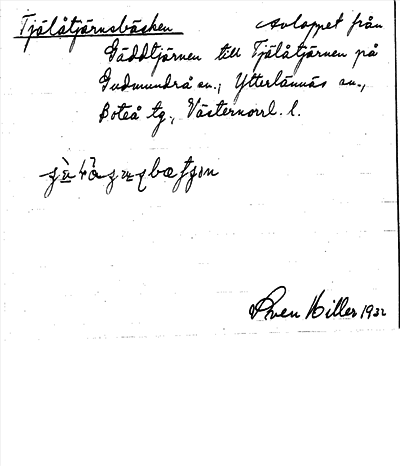 Tjälåtjärnsbäcken Avloppet från
Gäddtjärnen till Tjälåtjärnen på
Gudmundrå sn., Ytterlännäs sn.,
Boteå tg., Västernorrl. l.
Sven Hiller 1932